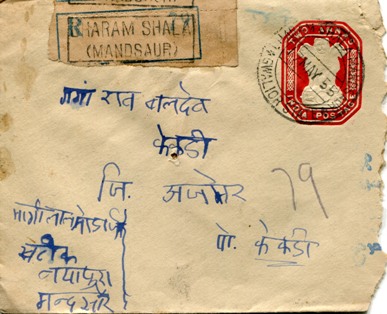 DHARAM SHALA
(MANDSAUR)
TWO ANNAS
MAY 55
INDIA POSTAGE
गंगा राव बलदेव
केकडी
जि. अजमेर
79
पो. केकडी
मांगीलाल
खटीक
नयापुरा
मन्दसौर